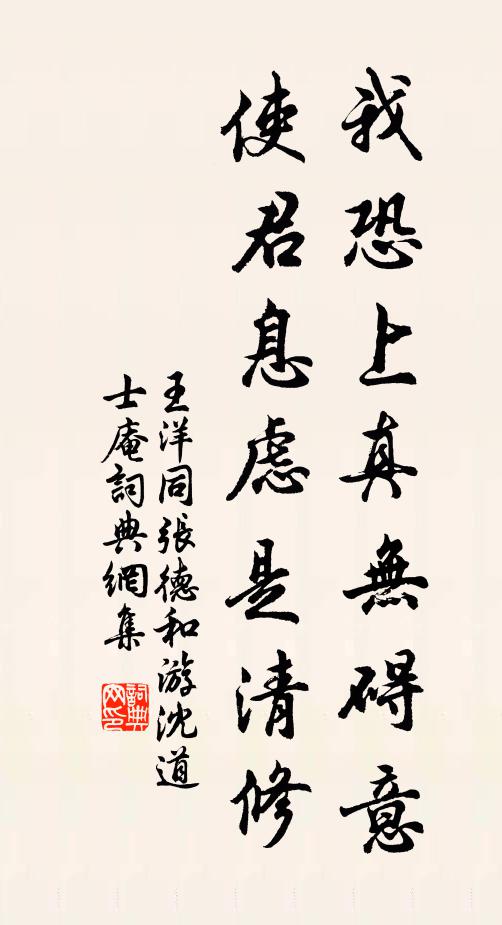 我恐上真無碍意
使君息慮是清修
王洋同張德和游沈道
士庵詞典網集
詞典
网印